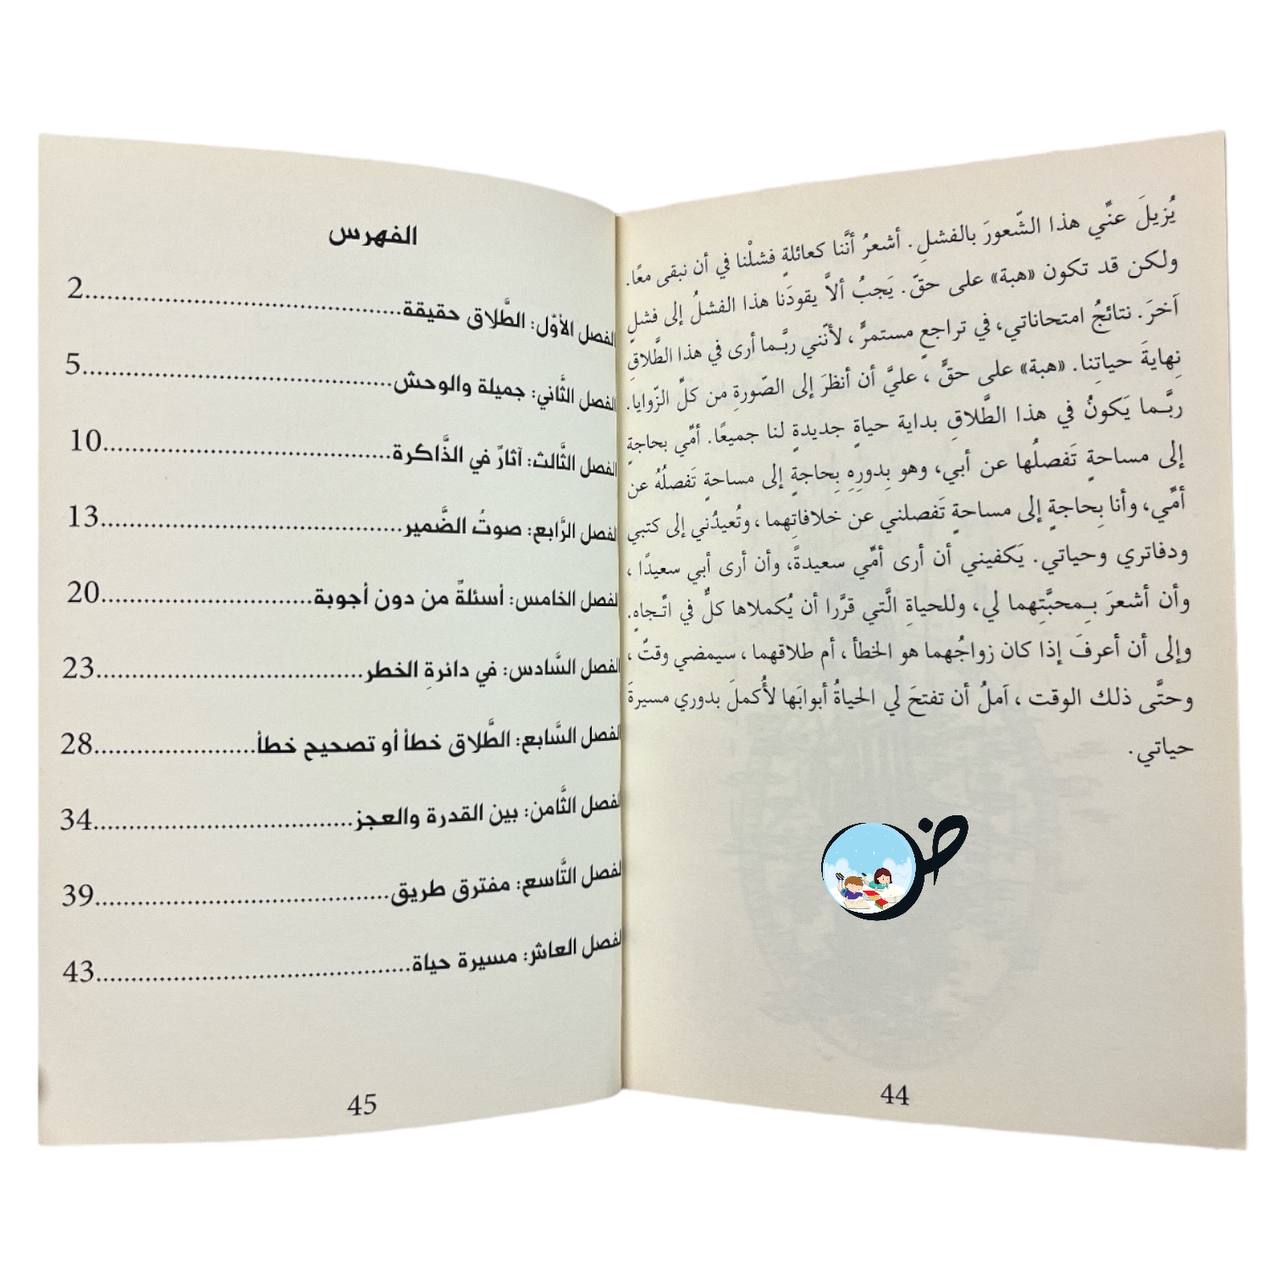 يُزيلَ عنِّي هذا الشّعورَ بالفشلِ. أشعرُ أنَّنا كعائلةٍ فشلْنا في أن نبقى معًا.
ولكن قد تكون «هبة» على حقّ. يَجبُ ألاَّ يقودَنا هذا الفشلُ إلى فشلٍ
آخرَ. نتائجُ امتحاناتي، في تراجعٍ مستمرٍّ، لأنّني ربَّـما أرى في هذا الطَّلاقِ
نِهايةَ حياتِنا. «هبة» على حقٍّ، عليَّ أن أنظرَ إلى الصّورةِ من كلِّ الزّوايا.
ربَّـما يَكونُ في هذا الطَّلاقِ بداية حياةٍ جديدةٍ لنا جميعًا. أمِّي بحاجةٍ
إلى مساحةٍ تَفصلُها عن أبي، وهو بِدورِهِ بِحاجةٍ إلى مساحةٍ تَفصلُهُ عن
أمِّي، وأنا بِحاجةٍ إلى مساحةٍ تَفصلني عن خلافاتِهما، وتُعيدُني إلى كتبي
ودفاتري وحياتي. يَكفيني أن أرى أمِّي سعيدةً، وأن أرى أبي سعيدًا،
وأن أشعرَ بِـمحبَّتِهما لي، وللحياةِ الَّتي قرَّرا أن يُكملاها كلٌّ في اتِّـجاهٍ.
وإلى أن أعرفَ إذا كان زواجُهما هو الخطأ، أم طلاقهما، سيمضي وقتٌ،
وحتَّى ذلك الوقت، آملُ أن تفتحَ لي الحياةُ أبوابَها لأُكملَ بدوري مسيرةَ
حياتي.
ض
44
الفهرس
الفصل الأوّل: الطَّلاق حقيقة........................................2
الفصل الثَّاني: جميلة والوحش........................................5
الفصل الثَّالث: آثارٌ في الذَّاكرة........................................10
الفصل الرَّابع: صوتُ الضَّمير........................................13
الفصل الخامس: أسئلةٌ من دون أجوبة..............................20
الفصل السَّادس: في دائرةِ الخطر....................................23
الفصل السَّابع: الطَّلاق خطأ أو تصحيح خطأ......................28
الفصل الثَّامن: بين القدرة والعجز...................................34
الفصل التَّاسع: مفترق طريق........................................39
الفصل العاشر: مسيرة حياة........................................43
45